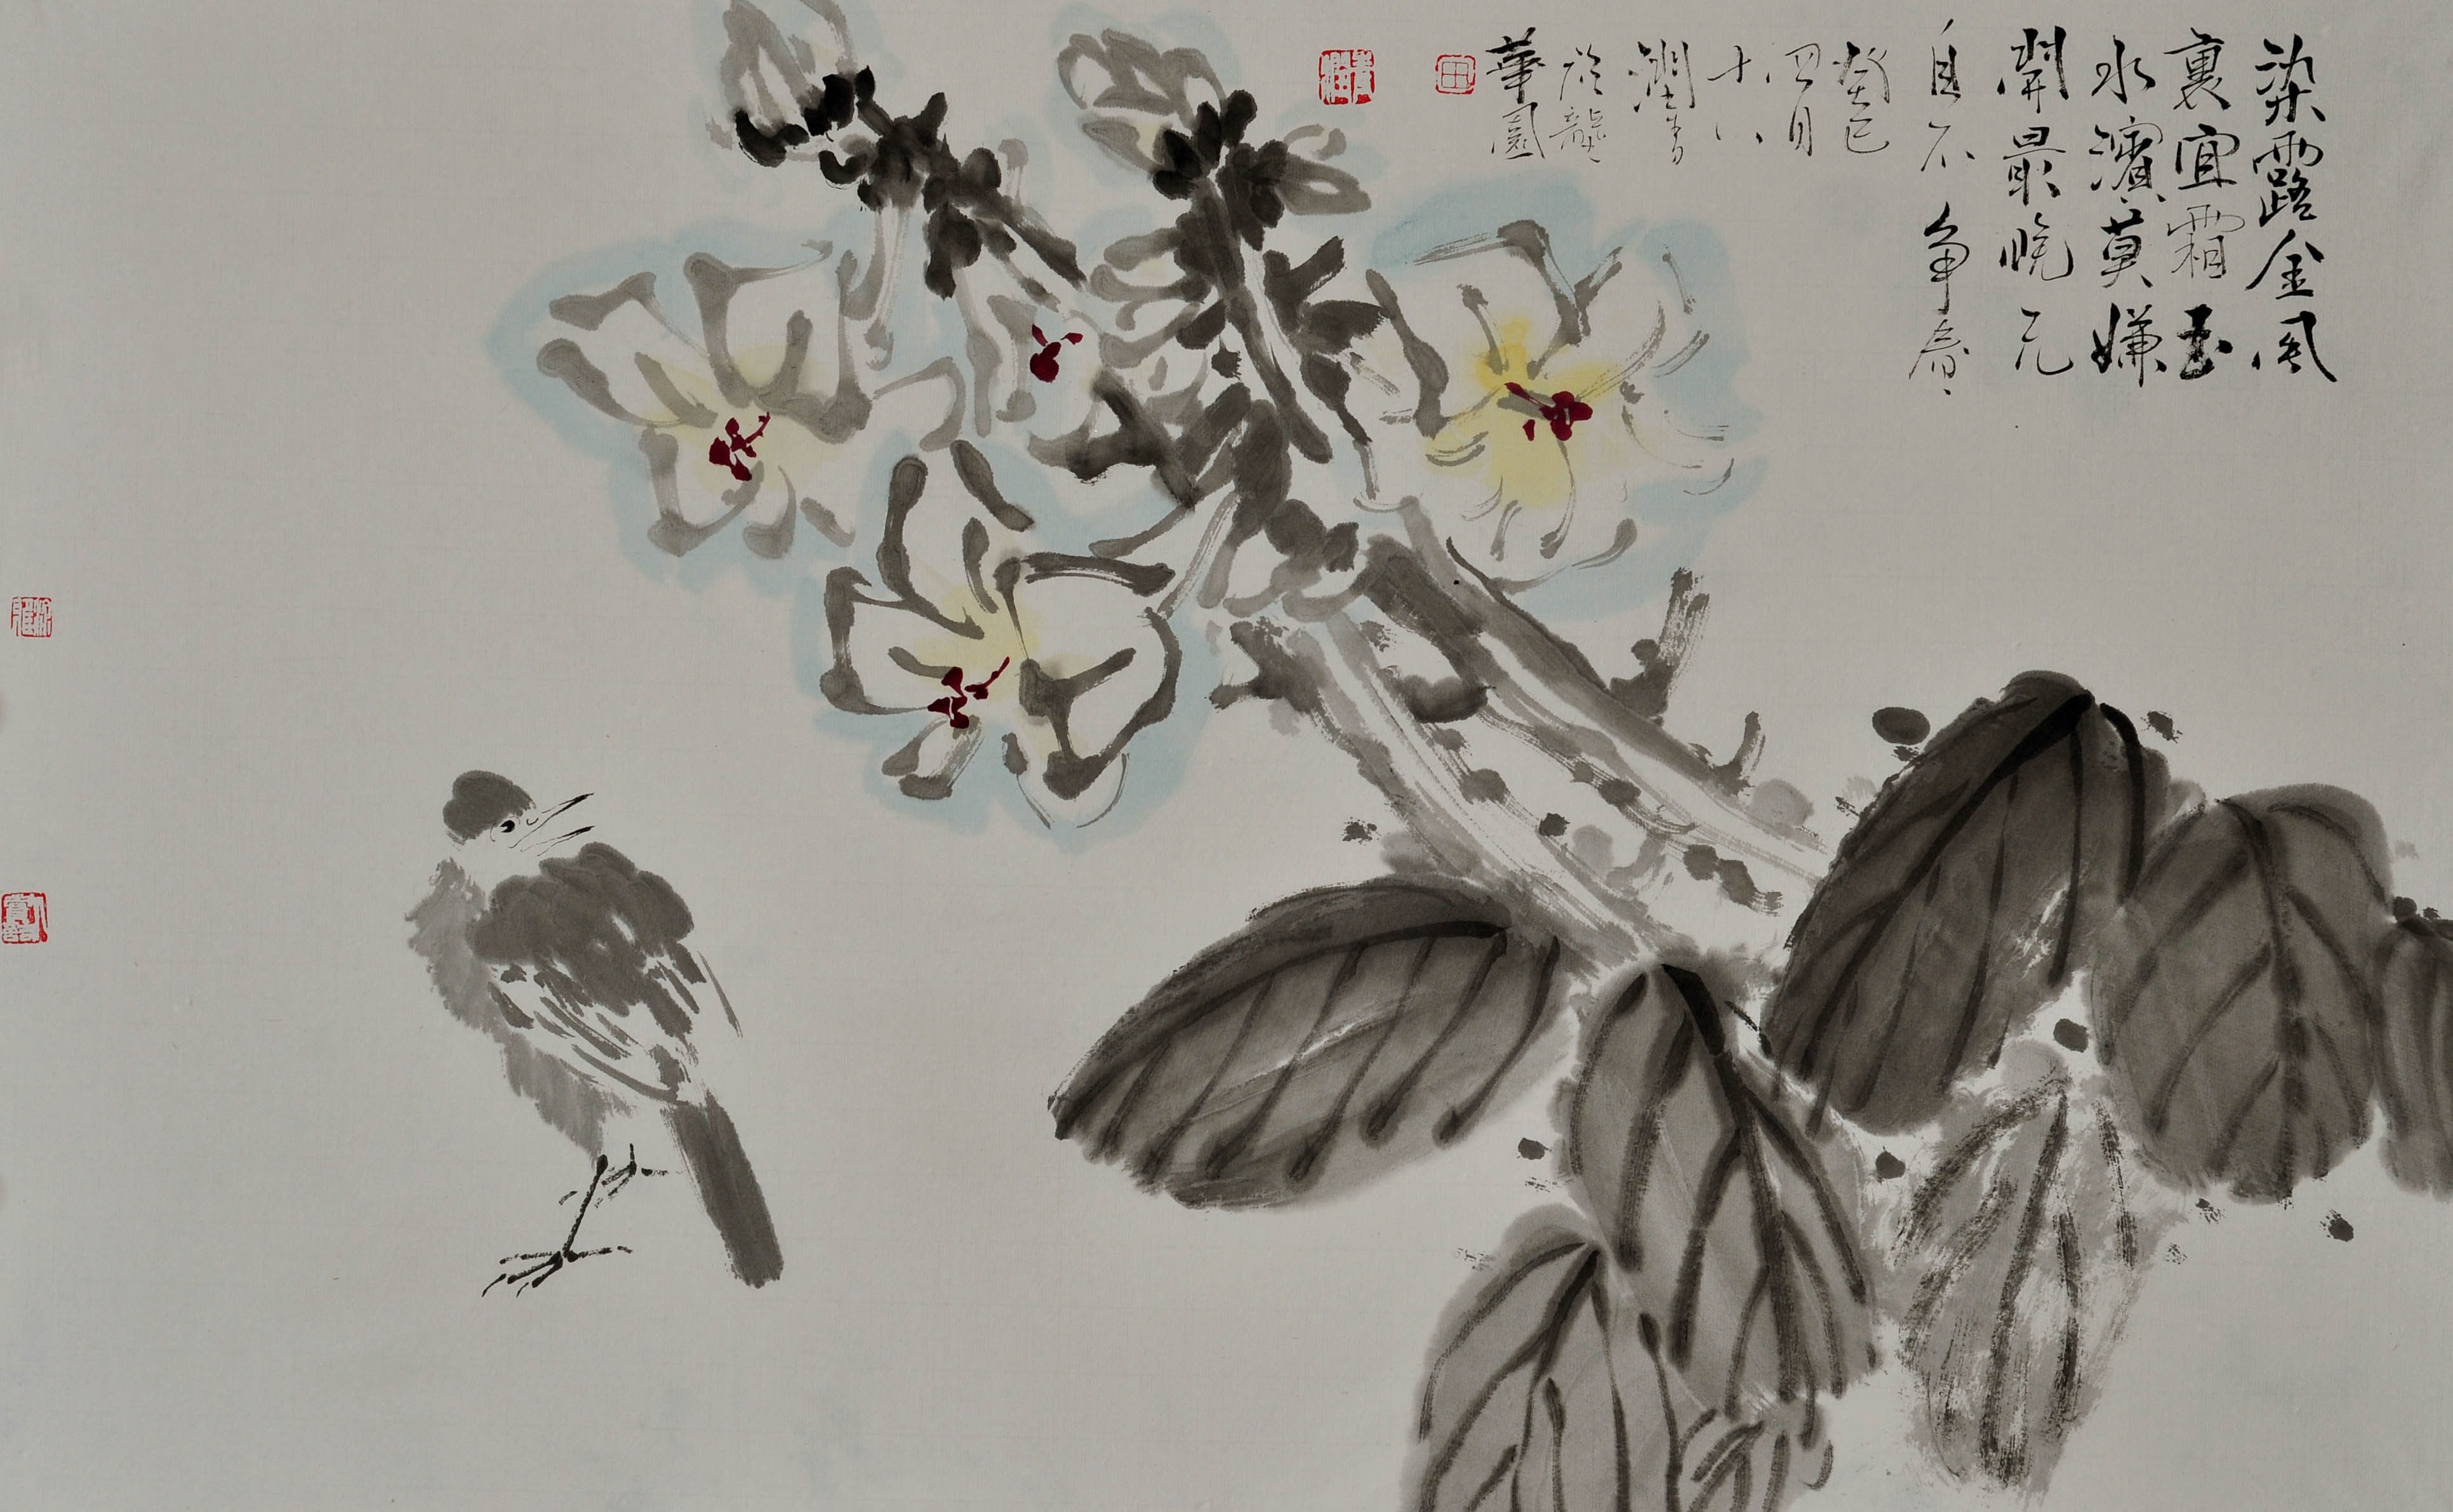 染露金風
裏宜霜玉
水濱莫嫌
開最晚元
自不争春
癸巳
四月
十八
潤青
於龍
華園
田